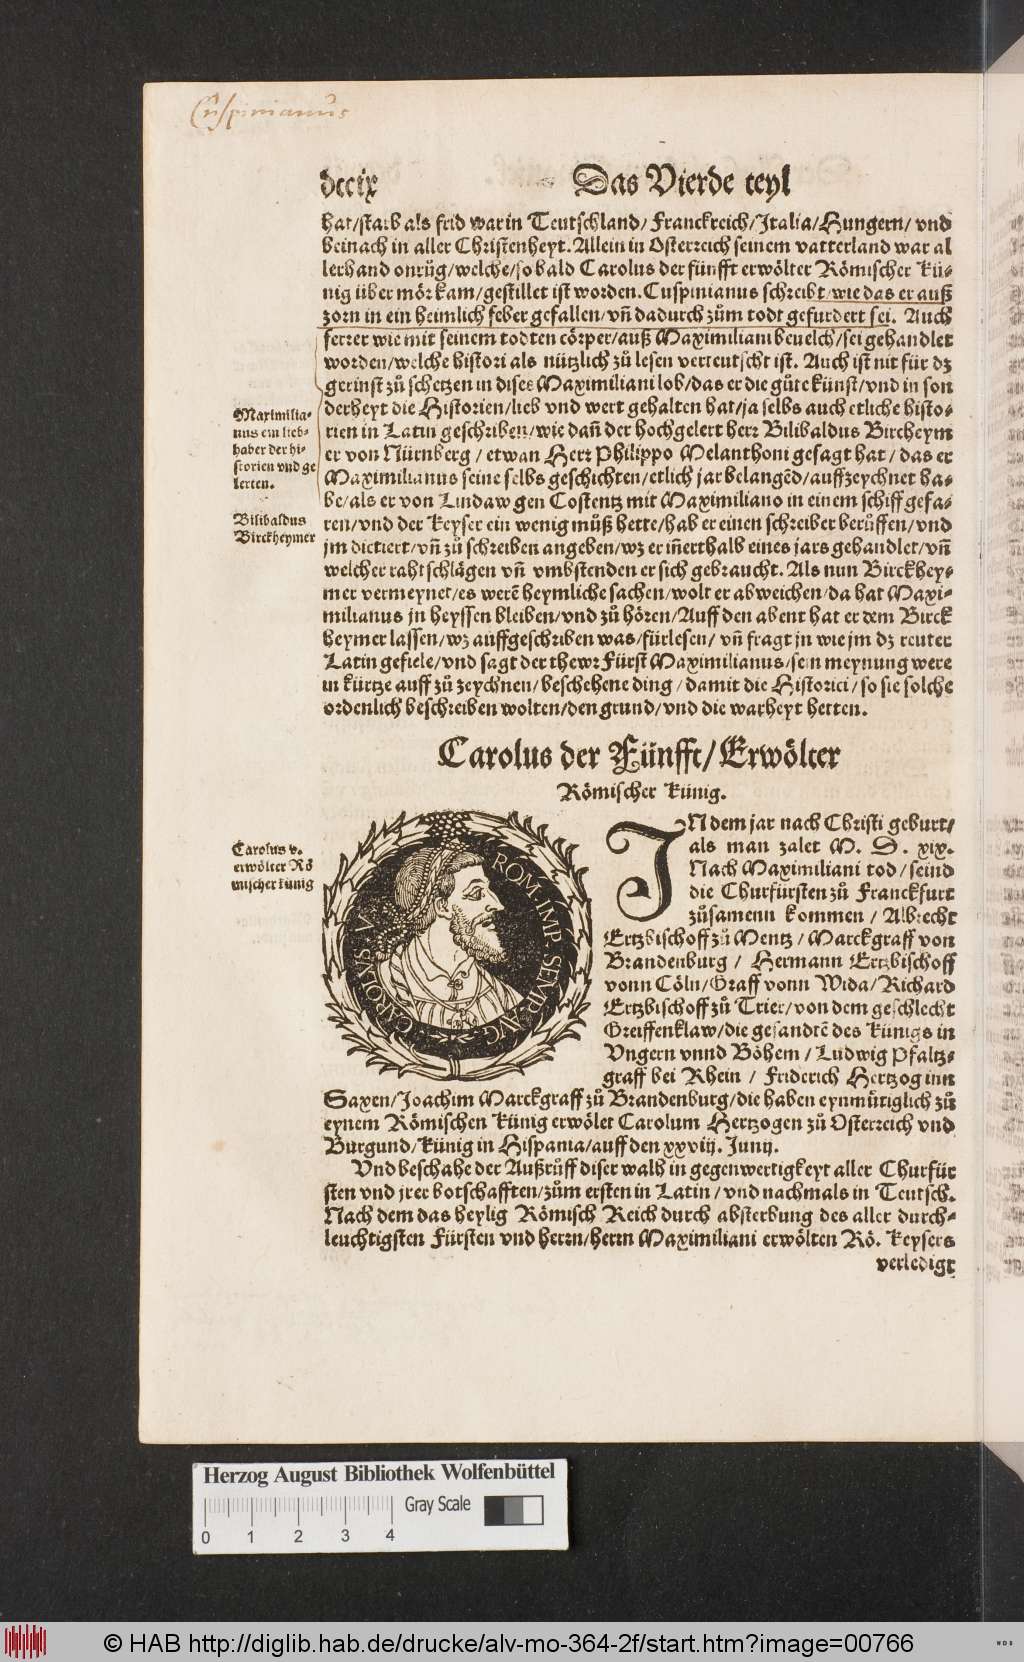 Cuspinianus
dccix Das Vierde teyl
hat/starb als frid war in Teutschland/Franckreich/Italia/Hungern/vnd
beinach in aller Christenheyt. Allein in Osterreich seinem vatterland war al
lerhand onrüg/welche/so bald Carolus der fünfft erwölter Römischer Kü-
nig über mör kam/gestillet ist worden. Cuspinianus schreibt/wie das er auß
zorn in ein heimlich feber gefallen/vñ dadurch zům todt gefurdert sei. Auch
ferrer wie mit seinem todten cörper/auß Maximiliani beuelch/sei gehandlet
worden/welche histori als nützlich zů lesen verteutscht ist. Auch ist nit für dz
gerinst zů schetzen in dises Maximiliani lob/das er die gůte künst/vnd in son
derheyt die Historien/lieb vnd wert gehalten hat/ja selbs auch etliche histo-
rien in Latin geschriben/wie dañ der hochgelert herr Bilibaldus Bircheym
er von Nürnberg/etwan Herr Philippo Melanthoni gesagt hat/das er
Maximilianus seine selbs geschichten/etlich jar belangēd/auffzeychnet ha-
be/als er von Lindaw gen Costentz mit Maximiliano in einem schiff gefa-
ren/vnd der Keyser ein wenig můß hette/hab er einen schreiber berůffen/vnd
jm dictiert/vñ zů schreiben angeben/wz er iñerthalb eines jars gehandlet/vñ
welcher rahtschlägen vñ vmbstenden er sich gebraucht. Als nun Birckhey-
mer vermeynet/es werē heymliche sachen/wolt er abweichen/da hat Maxi-
milianus jn heyssen bleiben/vnd zů hören/Auff den abent hat er dem Birck
heymer lassen/wz auffgeschriben was/fürlesen/vñ fragt jn wie jm dz reuter
Latin gefiele/vnd sagt der thewr Fürst Maximilianus/sein meynung were
in kürtze auff zů zeychnen/beschehene ding/damit die Historici/so sie solche
ordenlich beschreiben wolten/den grund/vnd die warheyt hetten.
Maximilia-
nus ein lieb-
haber der hi-
storien vnd ge
lerten.
Bilibaldus
Birckheymer
Carolus der Fünfft/Erwölter
Römischer Künig.
Carolus v.
erwölter Rö
mischer künig
CAROLVS V ROM. IMP. SEMP. AVG
IN dem jar nach Christi geburt/
als man zalet M. D. xix.
Nach Maximiliani tod/seind
die Churfürsten zů Franckfurt
zůsamenn kommen/Albrecht
Ertzbischoff zů Mentz/Marckgraff von
Brandenburg/Hermann Ertzbischoff
vonn Cöln/Graff vonn Wida/Richard
Ertzbischoff zů Trier/von dem geschlecht
Greiffenklaw/die gesandtē des Künigs in
Vngern vnnd Böhem/Ludwig Pfaltz-
graff bei Rhein/Friderich Hertzog inn
Saxen/Joachim Marckgraff zů Brandenburg/die haben eynmůtiglich zů
eynem Römischen Künig erwölet Carolum Hertzogen zů Osterreich vnd
Burgund/Künig in Hispania/auff den xxviij. Junij.
Vnd beschahe der Außrůff diser walh in gegenwertigkeyt aller Churfür
sten vnd jrer botschafften/zům ersten in Latin/vnd nachmals in Teutsch.
Nach dem das heylig Römisch Reich durch absterbung des aller durch-
leuchtigsten Fürsten vnd herrn/herrn Maximiliani erwölten Rö. Keysers
verledigt
Herzog August Bibliothek Wolfenbüttel
Gray Scale
0 1 2 3 4
© HAB http://diglib.hab.de/drucke/alv-mo-364-2f/start.htm?image=00766